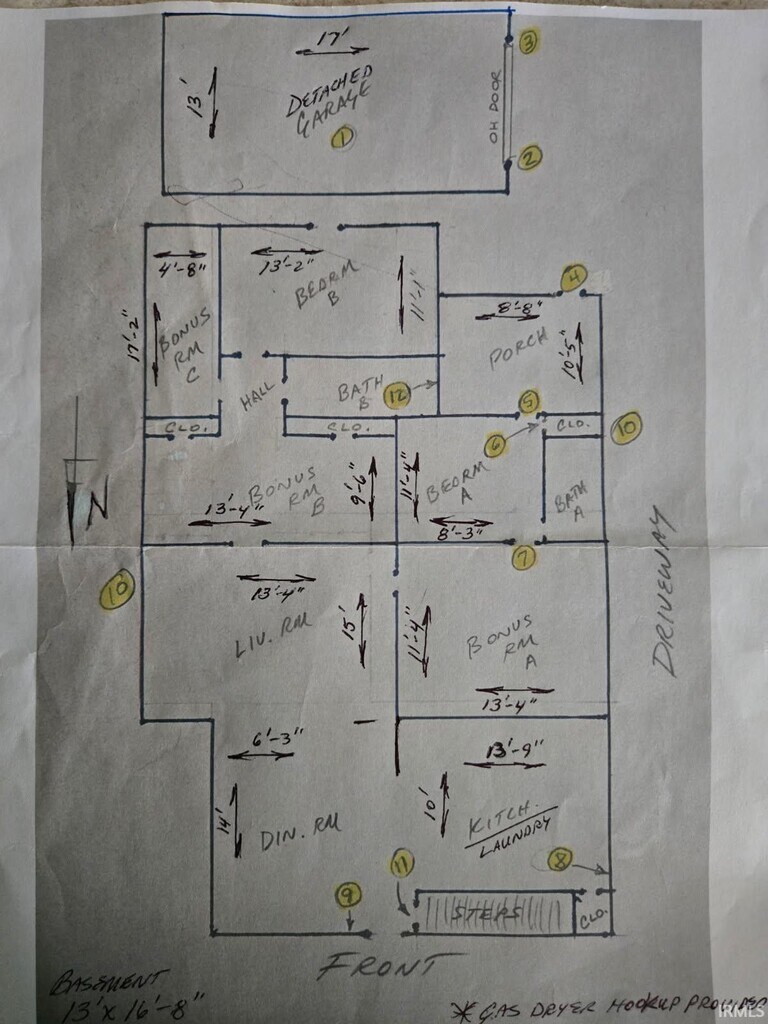 17'
3
13'
DETACHED
GARAGE
OH DOOR
1
2
4'-8"
13'-2"
BEDRM
B
11'-1"
4
8'-8"
PORCH
10'-5"
17'-2"
BONUS
RM
C
HALL
BATH
B
12
5
CLO.
CLO.
6
CLO.
10
BONUS
RM
B
13'-4"
9'-6"
11'-4"
BEDRM
A
8'-3"
BATH
A
N
7
DRIVEWAY
10
13'-4"
LIV. RM
15'
11'-4"
BONUS
RM
A
13'-4"
6'-3"
13'-9"
14'
DIN. RM
10'
KITCH.
LAUNDRY
11
8
9
STEPS
CLO.
FRONT
BASEMENT
13' x 16'-8"
* GAS DRYER HOOKUP PROVIDED
IRMLS